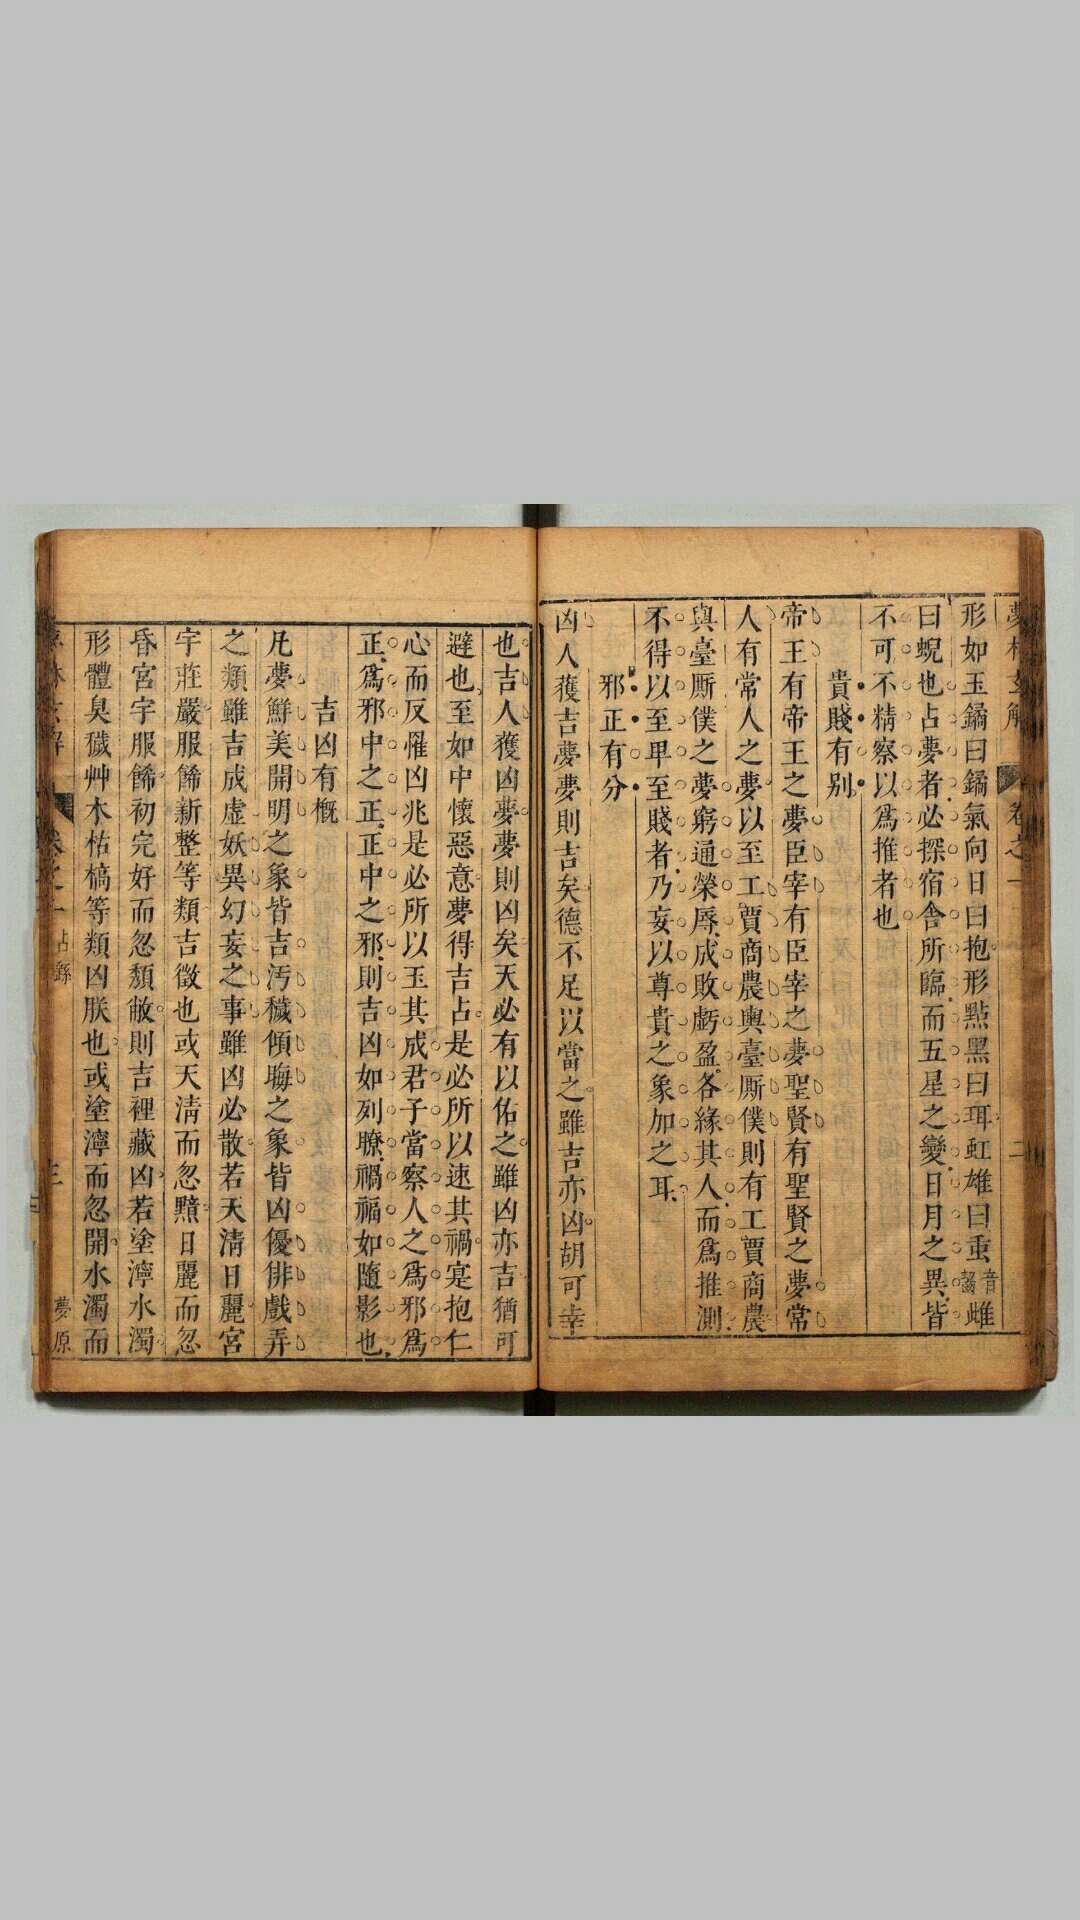 夢林玄解 卷之一 二
形如玉鐍曰鐍氣向日曰抱形點黑曰珥虹雄曰䖝音齧雌
曰蜺也占夢者必探宿舍所臨而五星之變日月之異皆
不可不精察以爲推者也
貴賤有别
帝王有帝王之夢臣宰有臣宰之夢聖賢有聖賢之夢常
人有常人之夢以至工賈商農輿臺厮僕則有工賈商農
與臺厮僕之夢窮通榮辱成敗虧盈各緣其人而爲推測
不得以至卑至賤者乃妄以尊貴之象加之耳
邪正有分
凶人獲吉夢夢則吉矣德不足以當之雖吉亦凶胡可幸
也吉人獲凶夢夢則凶矣天必有以佑之雖凶亦吉猶可
避也至如中懷惡意夢得吉占是必所以速其禍寔抱仁
心而反罹凶兆是必所以玉其成君子當察人之爲邪爲
正爲邪中之正正中之邪則吉凶如列瞭禍福如隨影也
吉凶有慨
凡夢鮮美開明之象皆吉汚穢傾晦之象皆凶優俳戲弄
之類雖吉成虛妖異幻妄之事雖凶必散若天淸日麗宮
宇莊嚴服餙新整等類吉徵也或天淸而忽黯日麗而忽
昏宮宇服餙初完好而忽頽敝則吉裡藏凶若塗濘水濁
形體臭穢艸木枯槁等類凶朕也或塗濘而忽開水濁而
夢林玄解 卷之一 占繇 三 夢原